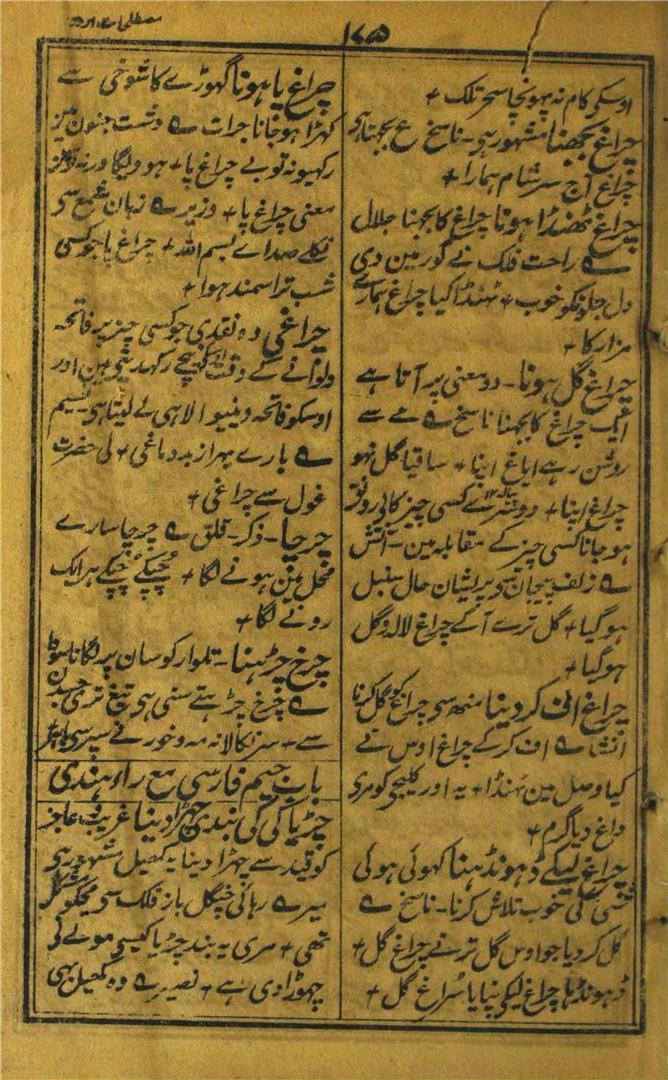 ۱۷۵
مصطلحات اردو
اوسکو کام نہ پہونچا سحر تلک +
چراغ بجھنا مشہور ہی - ناسخ ع بجھتا ہی
چراغ آج سر شام ہمارا +
چراغ ٹھنڈا ہونا چراغ کا بجھنا جلال
ے راحت فلک نے گور مین دی
دل جلونکو خوب + ٹھنڈا کیا چراغ ہمارے
مزار کا +
چراغ گل ہونا - دو معنی پر آتا ہے
ایک چراغ کا بجھنا ناسخ ے مے سے
روشن رہے ایاغ اپنا + ساقیا گل نہو
چراغ اپنا + دوسرے کسی چیز کا بی رونق
ہو جانا کسی چیز کے مقابلہ مین - آتش
ے زلف پیچان سی پریشان حال سنبل
ہو گیا + گل ترے آگے چراغ لالہ و گل
ہو گیا +
چراغ اف کر دینا منھ سی چراغ کو گل کرنا
انشا ے اف کر کے چراغ اوس نے
کیا وصل مین ٹھنڈا + یہ اور کلیجی کو مری
داغ دیا گرم +
چراغ لیکے ڈھونڈھنا کھوئی ہوئی
شی کی خوب تلاش کرنا - ناسخ ے
گل کر دیا جو اوس گل تر نے چراغ گل +
ڈھونڈھا چراغ لیکی نپایا سراغ گل +
چراغ پا ہونا گھوڑے کا شوخی سے
کھڑا ہو جانا جرات ے دشت جنون مین
رکھیو نہ تو بے چراغ پا + ہوویگا ورنہ
معنی چراغ پا + وزیر ے زبان شمع سی
نکلے صداے بسم اللہ + چراغ پا جو کسی
شب ترا سمند ہوا +
چراغی وہ نقدی جو کسی چیز پر فاتحہ
دلوانے کے وقت نیچے رکھدیتی ہین اور
اوسکو فاتحہ دینیوالا ہی لے لیتا ہی نسیم
ے بارے پھر از بد دماغی + لی حضرت
غول سے چراغی +
چرچا - ذکر - قلق ے چرچا سارے
محل مین ہونے لگا + چپکے چپکے ہر ایک
رونے لگا +
چرخ چڑہنا - تلوار کو سان پر لگانا
ے چرخ چڑہتے سنی ہی تیغ تری
سے + سر نکالا نہ مہ و خور نے سپر سی باہر
باب جیم فارسی مع راء ہندی
چڑیا کی کی بندی چھڑا دینا غریب و عاجز
کو قید سے چھڑا دینا یہ کھیل مشہور ہی
میر ے رہائی چنگل باز فلک سی مجکو مشکل
تھی + مری یہ بند چڑیا کیسی مولے نی
چھوڑا دی ہے + نصیر ے وہ کھیل بھی